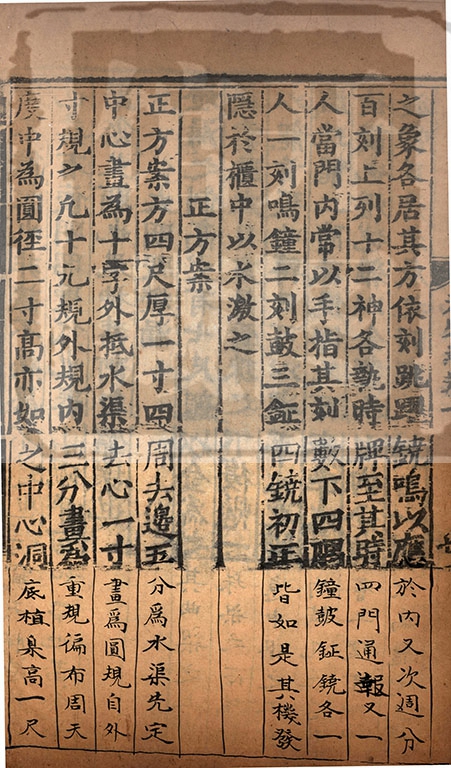 之象各居其方依刻跳躍鐃鳴以應於內又次週分
百刻上列十二神各執時牌至其時四門通報又一
人當門內常以手指其刻數下四隅鐘皷鉦鐃各一
人一刻鳴鐘二刻鼓三鉦四鐃初正皆如是其機發
隱於櫃中以水激之
正方案
正方案方四尺厚一寸四周去邊五分爲水渠先定
中心畫為十字外抵水渠去心一寸畫爲圓規自外
寸規之凡十九規外規内三分畫為重規徧布周天
度中為圓徑二寸高亦如之中心洞底植臬高一尺